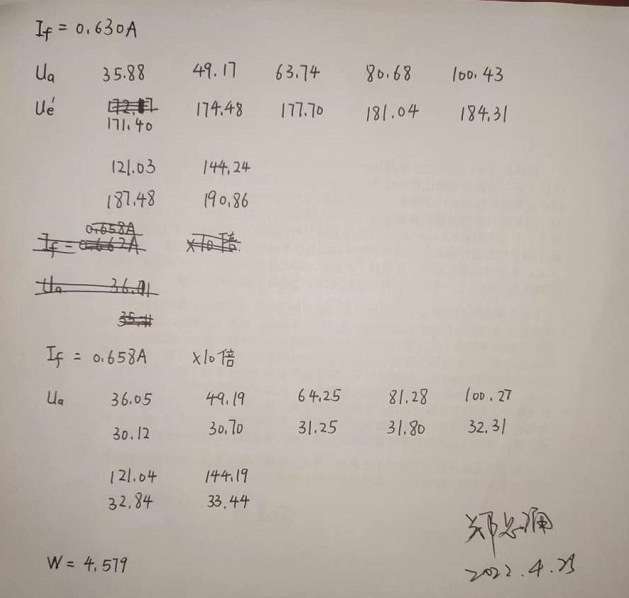 If = 0.630A
Ua 35.88 49.17 63.74 80.68 100.43
Ué 174.48 177.70 181.04 184.31
171.40
121.03 144.24
187.48 190.86
0.658A
If = 0.662A ×10倍
Ua 36.01
If = 0.658A ×10倍
Ua 36.05 49.19 64.25 81.28 100.27
30.12 30.70 31.25 31.80 32.31
121.04 144.19
32.84 33.44
W = 4.579
2022.4.23